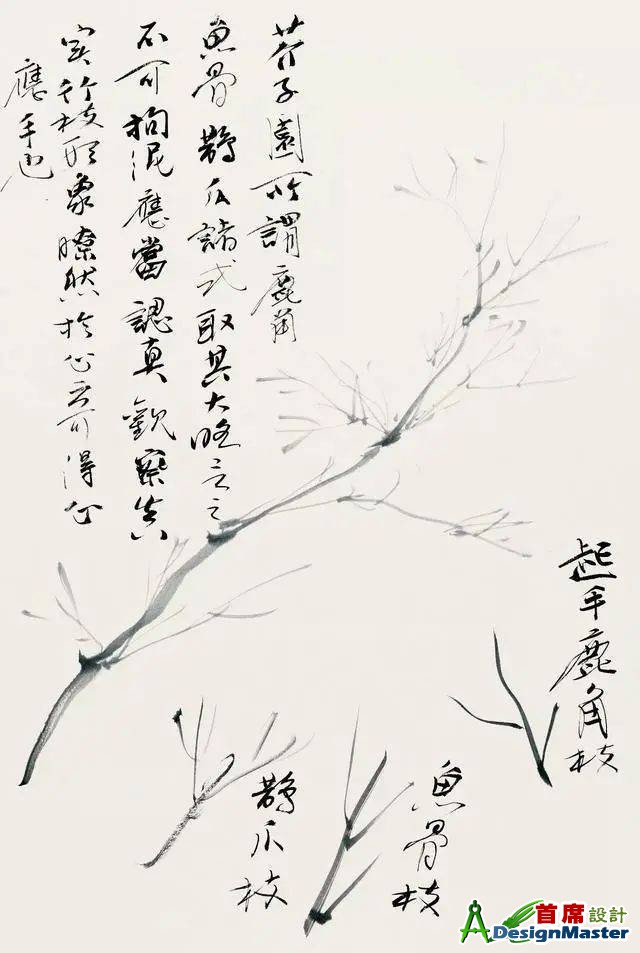 芥子園所謂鹿角
魚骨鵲爪諸式取其大略言之
不可拘泥應當認真觀察真
实竹枝形象瞭然於心方可得心
應手也
起手鹿角枝
魚骨枝
鵲爪枝
首席設計
DesignMaster